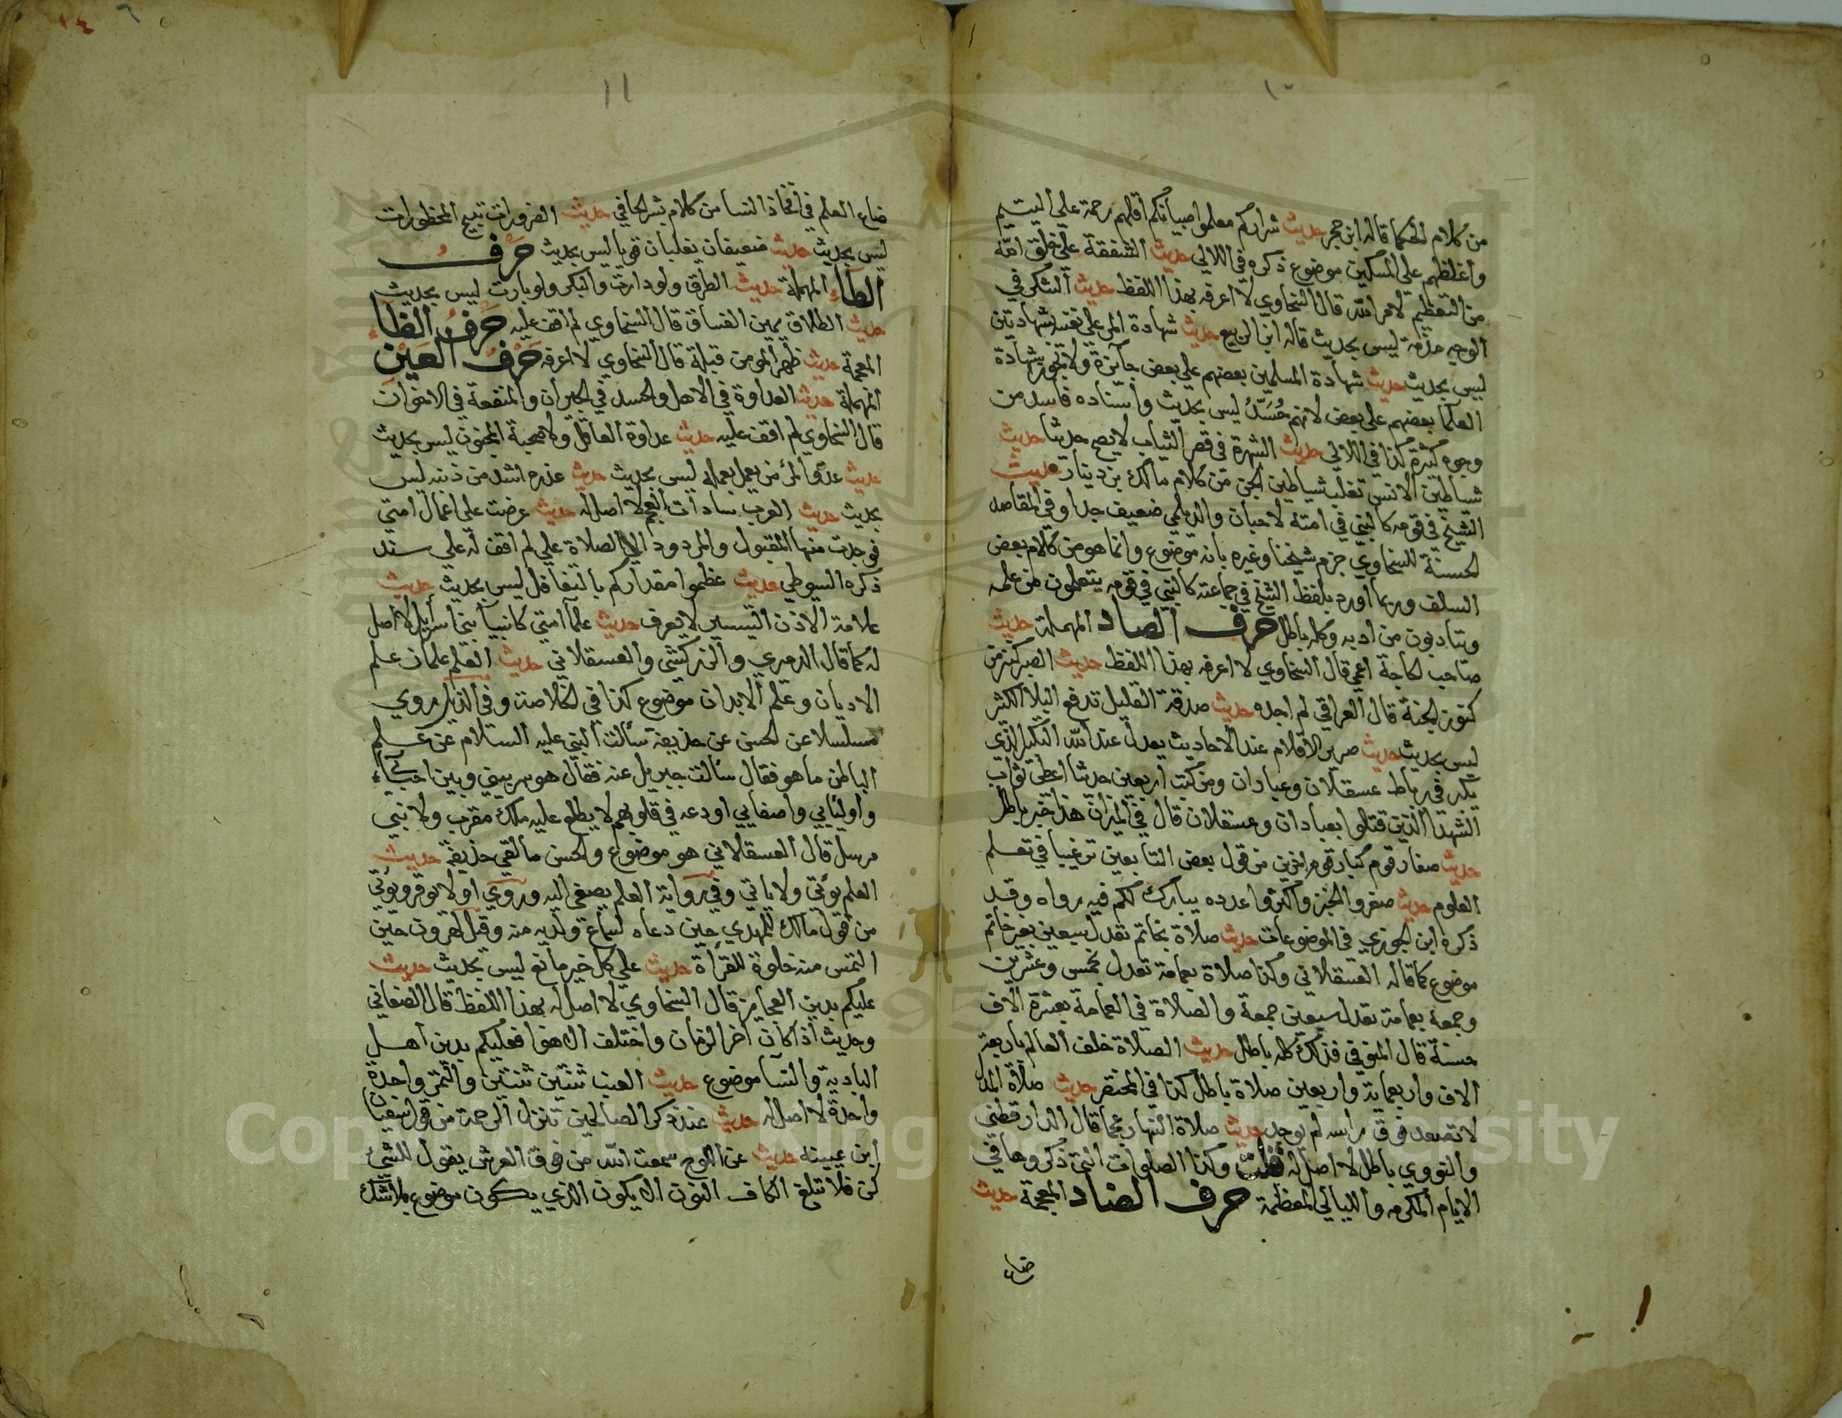 ١٠
من كلام الحكما قاله ابن حجر حديث شراركم معلموا صبيانكم اقلهم رحمة على اليتيم
واغلظهم على المسكين موضوع ذكره في اللالي حديث الشفقة على خلق الله
من التعظيم لامر الله قال السخاوي لا اعرفه بهذا اللفظ حديث الشكر في
الوجه مذمة ليس بحديث قاله ابن الربيع حديث شهادة المرء على نفسه بشهادتين
ليس بحديث حديث شهادة المسلمين بعضهم على بعض جائزة ولا تجوز شهادة
العلما بعضهم على بعض لانهم حسد ليس بحديث واسناده فاسد من
وجوه كثيرة كذا في اللالي حديث الشهرة في قصر الثياب لا يصح حديثا حديث
شياطين الانس تغلب شياطين الجن من كلام مالك بن دينار حديث
الشيخ في قومه كالنبي في امته لابن حبان والديلمي ضعيف جدا وفي المقاصد
الحسنة للسخاوي جزم شيخنا وغيره بانه موضوع وانما هو من كلام بعض
السلف وربما اورد بلفظ الشيخ في جماعته كالنبي في قومه يتعلمون من علمه
ويتادبون من ادبه وكله باطل حرف الصاد المهملة حديث
صاحب الحاجة اعمى قال السخاوي لا اعرفه بهذا اللفظ حديث الصبر كنز من
كنوز الجنة قال العراقي لم اجده حديث صدقة القليل تدفع البلا الكثير
ليس بحديث حديث صرير الاقلام عند الاحاديث يعدل عند الله التكبير الذي
يكبر في رباط عسقلان وعبادان ومن كتب اربعين حديثا اعطي ثواب
الشهدا الذين قتلوا بعبادان وعسقلان قال في الميزان هذا خبر باطل
حديث صغار قوم كبار قوم اخرين من قول بعض التابعين ترغيبا في تعلم
العلوم حديث صغروا الخبز واكثروا عدده يبارك لكم فيه رواه وقد
ذكره ابن الجوزي في الموضوعات حديث صلاة بخاتم تعدل سبعين بغير خاتم
موضوع كما قاله العسقلاني وكذا صلاة بعمامة تعدل بخمس وعشرين
وجمعة بعمامة تعدل سبعين جمعة والصلاة في العمامة بعشرة الاف
حسنة قال المنوفي فذلك كله باطل حديث الصلاة خلف العالم باربعة
الاف واربعماية واربعين صلاة باطل كذا في المختصر حديث صلاة المدل
لا تصعد فوق راسه لم يوجد حديث صلاة النهار عجما قال الدارقطني
والنووي باطل لا اصل له قلت وكذا الصلوات التي ذكروها في
الايام المكرمه والليالي المعظمة حرف الضاد المعجمة حديث
ضاع
١١
ضاع العلم في افخاذ النسا من كلام بشر الحافي حديث الضرورات تبيح المحظورات
ليس بحديث حديث ضعيفان يغلبان قويا ليس بحديث حرف
الطاء المهملة حديث الطرق ولو دارت والبكر ولو بارت ليس بحديث
حديث الطلاق يمين الفساق قال السخاوي لم اقف عليه حرف الظاء
المعجمة حديث ظهر المومن قبلة قال السخاوي لا اعرفه حرف العين
المهملة حديث العداوة في الاهل والحسد في الجيران والمنفعة في الاخوان
قال السخاوي لم اقف عليه حديث عداوة العاقل ولا صحبة المجنون ليس بحديث
حديث عدو المرء من يعمل بعمله ليس بحديث حديث عذره اشد من ذنبه ليس
بحديث حديث العرب سادات العجم لا اصل له حديث عرضت علي اعمال امتي
فوجدت منها المقبول والمردود الا الصلاة علي لم اقف له على سند
ذكره السيوطي حديث عظموا مقداركم بالتغافل ليس بحديث حديث
علامة الاذن التيسير لا يعرف حديث علما امتي كانبيا بني اسرائيل لا اصل
له كما قال الدميري والزركشي والعسقلاني حديث العلم علمان علم
الاديان وعلم الابدان موضوع كذا في الخلاصة وفي الذيل روي
مسلسلا عن الحسن عن حذيفة سالت النبي عليه السلام عن علم
الباطن ما هو فقال سالت جبريل عنه فقال هو سر بيني وبين احبائي
واوليايي واصفيايي اودعه في قلوبهم لا يطلع عليه ملك مقرب ولا نبي
مرسل قال العسقلاني هو موضوع والحسن ما لقي حذيفة حديث
العلم يؤتى ولا ياتي وفي رواية العلم يصغى اليه وروي اولا يوقر ويؤتى
من قول مالك للمهدي حين دعاه لسماع ولديه منه وقيل لهرون حين
التمس منه خلوة للقراة حديث على كل خير مانع ليس بحديث حديث
عليكم بدين العجايز قال السخاوي لا اصل له بهذا اللفظ قال الصغاني
وحديث اذا كان اخر الزمان واختلف الاهوا فعليكم بدين اهل
البادية والنسا موضوع حديث العنب ثنتين ثنتين والتمر واحدة
واحدة لا اصل له حديث عند ذكر الصالحين تنزل الرحمة من قول سفيان
ابن عيينه حديث عن اللوح سمعت الله من فوق العرش يقول للشيء
كن فلا تبلغ الكاف النون الا يكون الذي يكون موضوع بلا شك